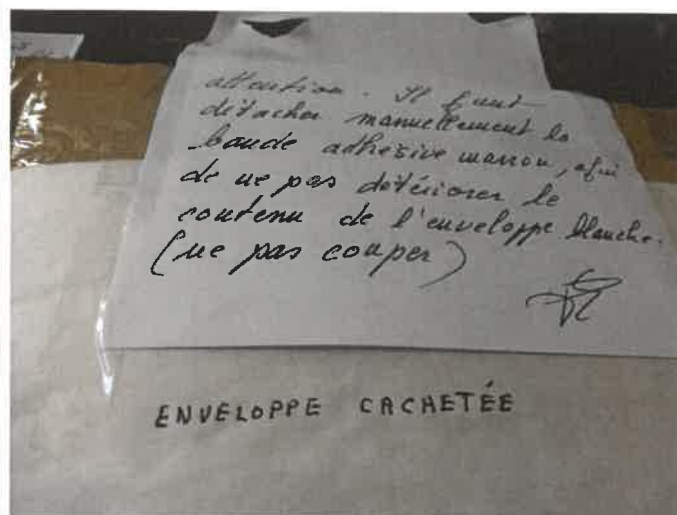 attention. Il faut
détacher manuellement la
bande adhésive marron, afin
de ne pas détériorer le
contenu de l'enveloppe blanche.
(ne pas couper)
ENVELOPPE CACHETÉE